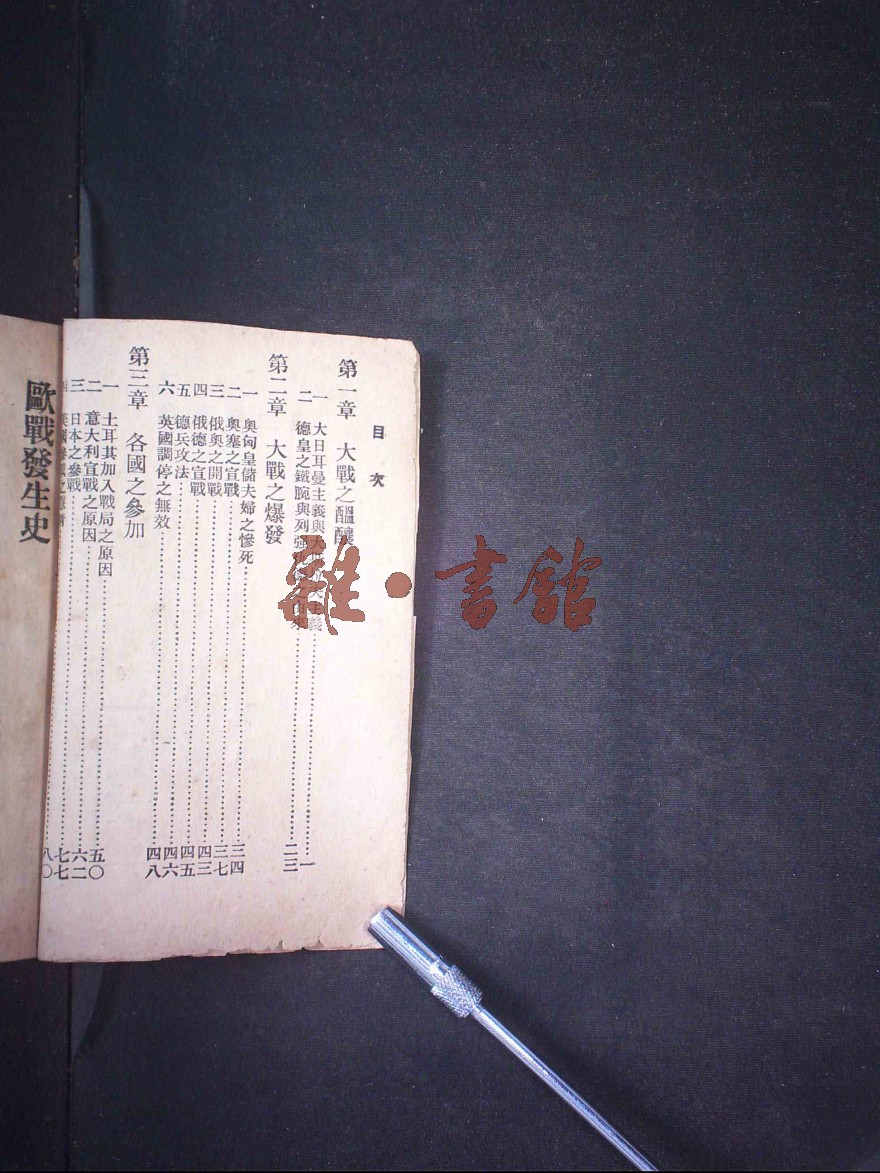 目次
第一章 大戰之醞釀
一 大日耳曼主義與大斯拉夫主義……一
二 德皇之鐵腕與列強……二三
第二章 大戰之爆發
一 奧匈皇儲夫婦之慘死……三四
二 奧塞之宣戰……三七
三 俄奧之開戰……四三
四 俄德之宣戰……四五
五 德兵攻法……四六
六 英國調停之無效……四八
第三章 各國之參加
一 土耳其加入戰局之原因……五〇
二 意大利宣戰之原因……六二
三 日本之參戰……七七
四 八〇
歐戰發生史
雜·書館